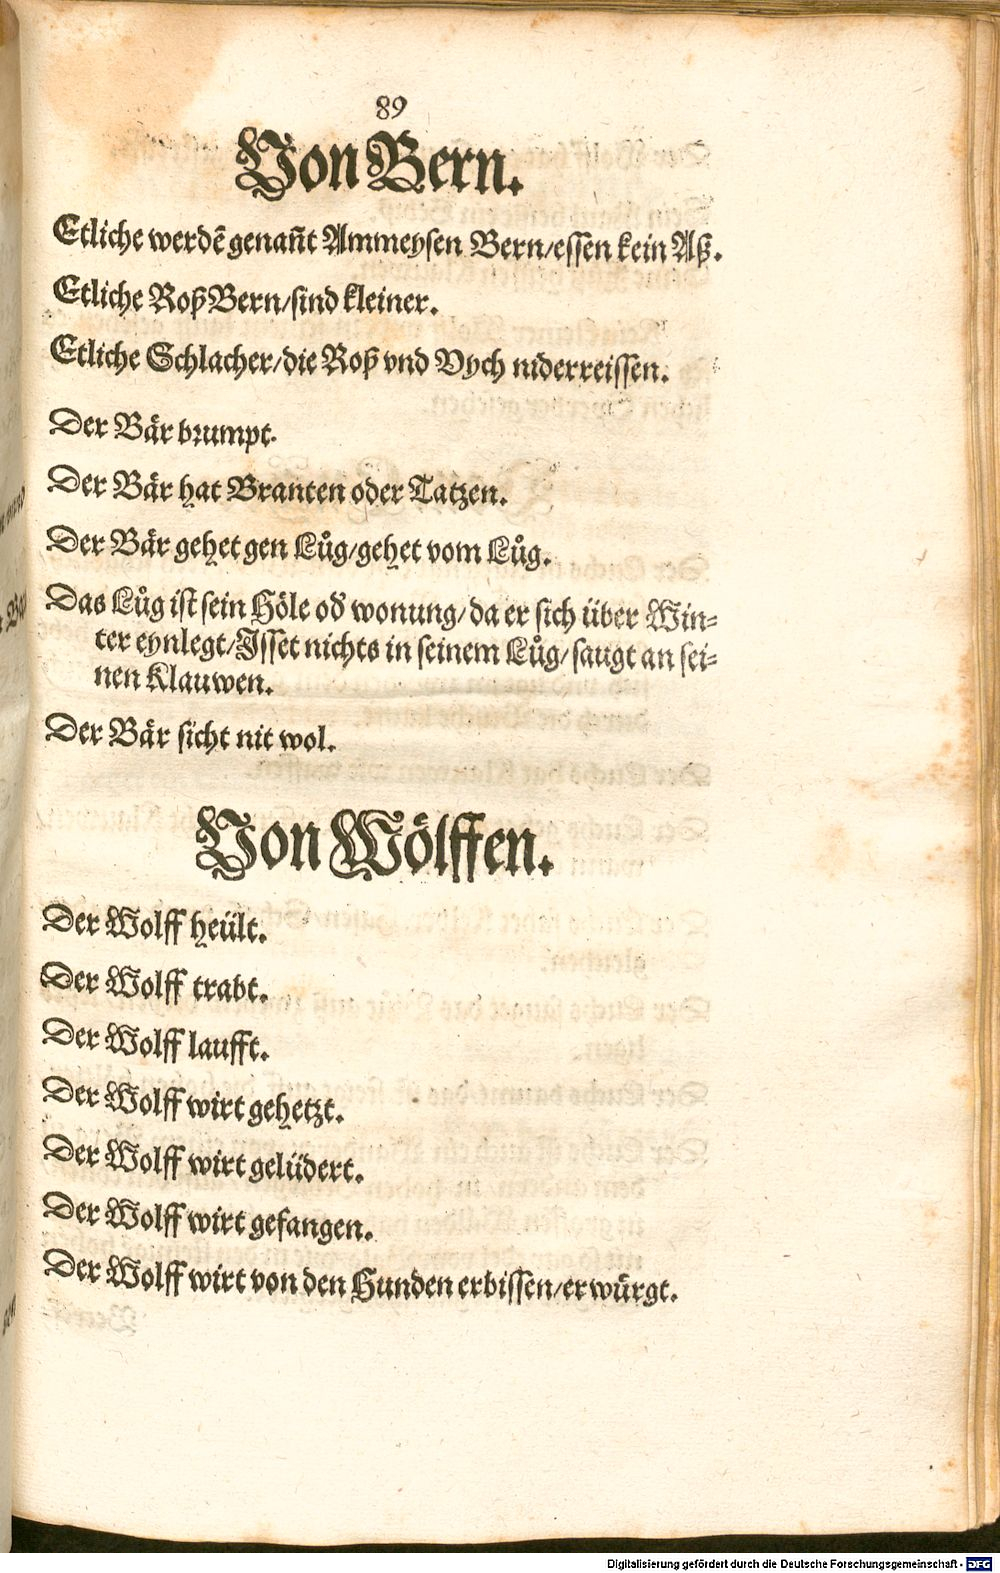 89
Von Bern.
Etliche werdē genañt Ammeysen Bern/essen kein Aß.
Etliche Roß Bern/sind kleiner.
Etliche Schlacher/die Roß vnd Vych niderreissen.
Der Bär brumpt.
Der Bär hat Branten oder Tatzen.
Der Bär gehet gen Lůg/gehet vom Lůg.
Das Lůg ist sein Höle od̄ wonung/da er sich über Win-
ter eynlegt/Isset nichts in seinem Lůg/saugt an sei-
nen Klauwen.
Der Bär sicht nit wol.
Von Wölffen.
Der Wolff heült.
Der Wolff trabt.
Der Wolff laufft.
Der Wolff wirt gehetzt.
Der Wolff wirt gelüdert.
Der Wolff wirt gefangen.
Der Wolff wirt von den Hunden erbissen/erwürgt.
Digitalisierung gefördert durch die Deutsche Forschungsgemeinschaft - DFG